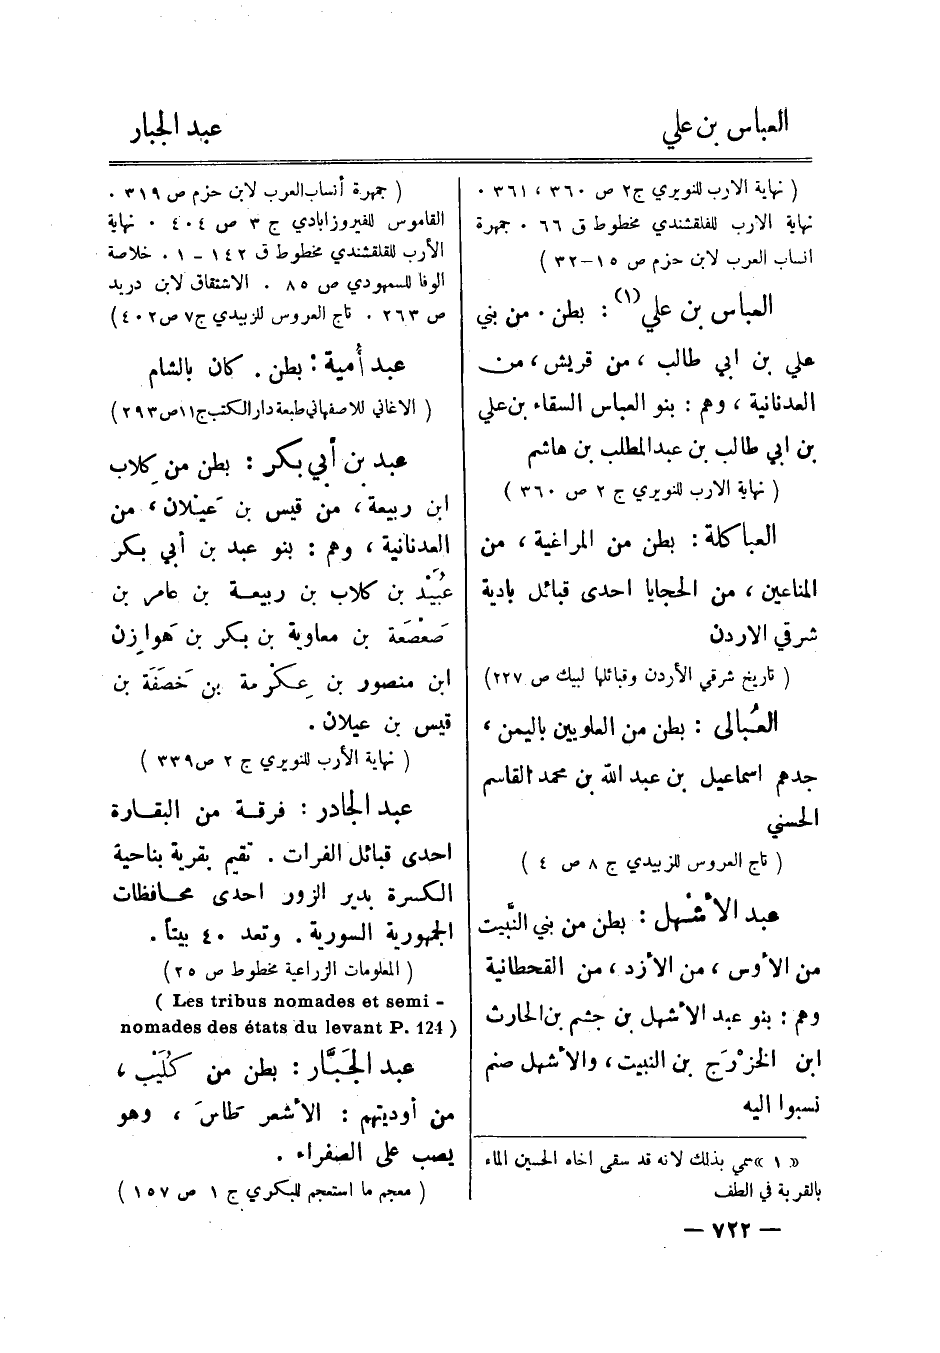 العباس بن علي
عبد الجبار
( نهاية الارب للنويري ج٢ ص ٣٦٠ ، ٣٦١ ٠
نهاية الارب للقلقشندي مخطوط ق ٦٦ ٠ جمهرة
انساب العرب لابن حزم ص ١٥-٣٢ )
العباس بن علي(١) : بطن ٠ من بني
علي بن ابي طالب ، من قريش ، من
العدنانية ، وهم : بنو العباس السقاء بن علي
بن ابي طالب بن عبدالمطلب بن هاشم
( نهاية الارب للنويري ج ٢ ص ٣٦٠ )
العباكلة : بطن من المراغية ، من
المناعين ، من الحجايا احدى قبائل بادية
شرقي الاردن
( تاريخ شرقي الأردن وقبائلها لبيك ص ٢٢٧)
العُبالى : بطن من العلويين باليمن ،
جدهم اسماعيل بن عبد الله بن محمد القاسم
الحسني
( تاج العروس للزبيدي ج ٨ ص ٤ )
عبد الأشْهل : بطن من بني النَّبيت
من الأوس ، من الأزد ، من القحطانية
وهم : بنو عبد الأشهل بن جشم بن الحارث
ابن الخزْرَج بن النبيت ، والأشهل صنم
نسبوا اليه
« ١ » سمي بذلك لانه قد سقى اخاه الحسين الماء
بالقربة في الطف
( جمهرة أنساب العرب لابن حزم ص ٣١٩ ٠
القاموس للفيروزابادي ج ٣ ص ٤٠٤ ٠ نهاية
الأرب للقلقشندي مخطوط ق ١٤٢ - ١ ٠ خلاصة
الوفا للسمهودي ص ٨٥ ٠ الاشتقاق لابن دريد
ص ٢٦٣ ٠ تاج العروس للزبيدي ج٧ ص٤٠٢)
عبد أُمية : بطن . كان بالشام
( الاغاني للاصفهاني طبعة دار الكتب ج١١ ص٢٩٣)
عبد بن أبي بكر : بطن من كِلاب
ابن ربيعة ، من قيس بن عَيْلان ، من
العدنانية ، وهم : بنو عبد بن أبي بكر
عُبَيْد بن كلاب بن ربيعة بن عامر بن
صَعْصَعَة بن معاوية بن بكر بن هَوازِن
ابن منصور بن عِكْرِمة بن خَصَفَة بن
قيس بن عيلان .
( نهاية الأرب للنويري ج ٢ ص ٣٣٩ )
عبد الجادر : فرقة من البقارة
احدى قبائل الفرات . تقيم بقرية بناحية
الكسرة بدير الزور احدى محافظات
الجمهورية السورية . وتعد ٤٠ بيتاً .
( المعلومات الزراعية مخطوط ص ٢٥ )
( Les tribus nomades et semi -
nomades des états du levant P. 124 )
عبد الجَبَّار : بطن من كُلَيْب ،
من أوديتهم : الأشعر طاسَ ، وهو
يصب على الصفراء .
( معجم ما استعجم للبكري ج ١ ص ١٥٧ )
— ٧٢٢ —